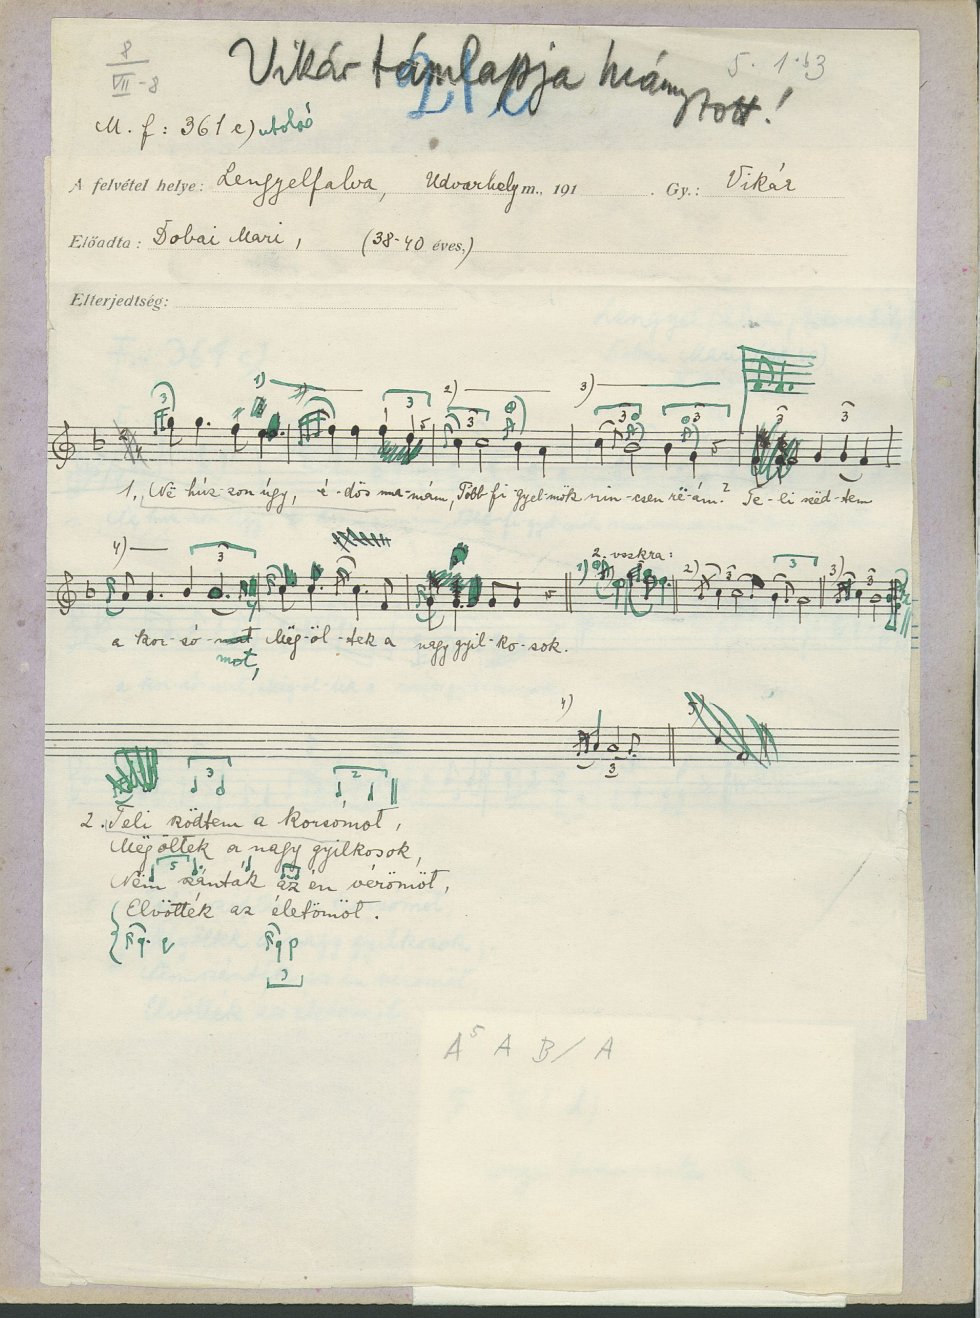 8
VII-8
Vikár támlapja hiányzott!
21c
5. 1.b3
M. f: 361 c) utolsó
A felvétel helye: Lengyelfalva, Udvarhely m., 191 . Gy.: Vikár
Előadta: Dobai Mari, (38-40 éves,)
Elterjedtség:
1) 2) 3)
1., Në húz-zon úgy, é-dös ma-mám, Több fi-gyel-mök nin-csen rë-ám? Te-li szëd-tem
4) 2. vsszkra: 1) 2) 3)
a kor-só-mat Mëg-öl-tek a nagy gyil-ko-sok.
mot,
4) 5)
2. Teli szödtem a korsómot,
Mëgöltek a nagy gyilkosok,
Nëm szánták az én vérömöt,
Elvötték az életömöt.
A⁵ A B/ A